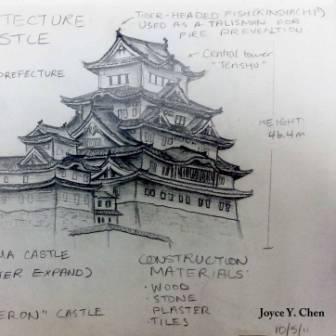 TECTURE
STLE
OREFECTURE
TIGER-HEADED FISH (KINSHACHI)
USED AS A TALISMAN FOR
FIRE PREVENTION
Central tower
"TENSHU"
HEIGHT:
46.4m
MA CASTLE
TER EXPAND)
ERON" CASTLE
CONSTRUCTION
MATERIALS:
• WOOD
• STONE
PLASTER
• TILES
Joyce Y. Chen
10/5/11